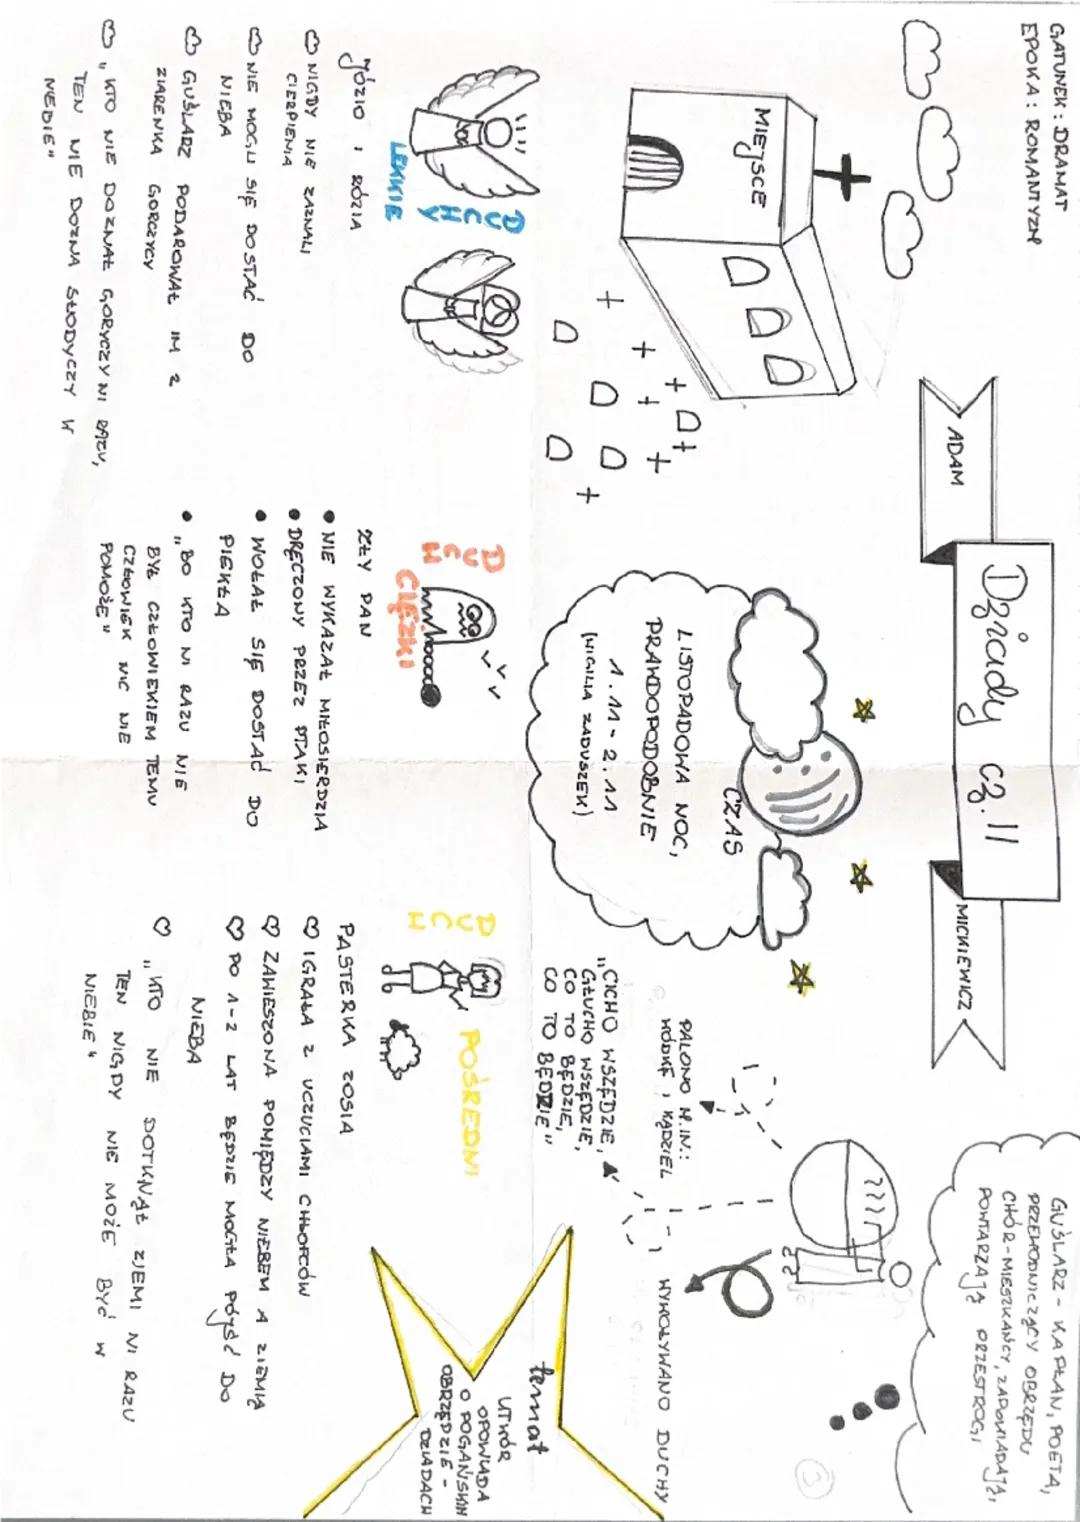 GATUNEK: DRAMAT
EPOKA: ROMANTYZM
ADAM
Dziady cz. II
MICKIEWICZ
GUŚLARZ - KAPŁAN, POETA,
PRZEWODNICZĄCY OBRZĘDU
CHÓR - MIESZKAŃCY, ZAPOWIADAJĄ,
POWTARZAJĄ PRZESTROGI
MIEJSCE
CZAS
LISTOPADOWA NOC,
PRAWDOPODOBNIE
1.11 - 2.11
(WIGILIA ZADUSZEK)
PALONO M.IN.:
WÓDKĘ, KĄDZIEL
WYWOŁYWANO DUCHY
"CICHO WSZĘDZIE,
GŁUCHO WSZĘDZIE,
CO TO BĘDZIE,
CO TO BĘDZIE"
temat
UTWÓR
OPOWIADA
O POGAŃSKIM
OBRZĘDZIE -
DZIADACH
DUCHY
LEKKIE
JÓZIO I RÓZIA
NIGDY NIE ZAZNALI
CIERPIENIA
NIE MOGLI SIĘ DOSTAĆ DO
NIEBA
GUŚLARZ PODAROWAŁ IM 2
ZIARENKA GORYCZY
"KTO NIE DOZNAŁ GORYCZY NI RAZU,
TEN NIE DOZNA SŁODYCZY W
NIEBIE"
DUCH
CIĘŻKI
ZŁY PAN
NIE WYKAZAŁ MIŁOSIERDZIA
DRĘCZONY PRZEZ PTAKI
WOLAŁ SIĘ DOSTAĆ DO
PIEKŁA
"BO KTO NI RAZU NIE
BYŁ CZŁOWIEKIEM TEMU
CZŁOWIEK NIC NIE
POMOŻE"
DUCH
POŚREDNI
PASTERKA ZOSIA
IGRAŁA Z UCZUCIAMI CHŁOPCÓW
ZAWIESZONA POMIĘDZY NIEBEM A ZIEMIĄ
PO 1-2 LAT BĘDZIE MOGŁA PÓJŚĆ DO
NIEBA
"KTO NIE DOTKNĄŁ ZIEMI NI RAZU
TEN NIGDY NIE MOŻE BYĆ W
NIEBIE"
3